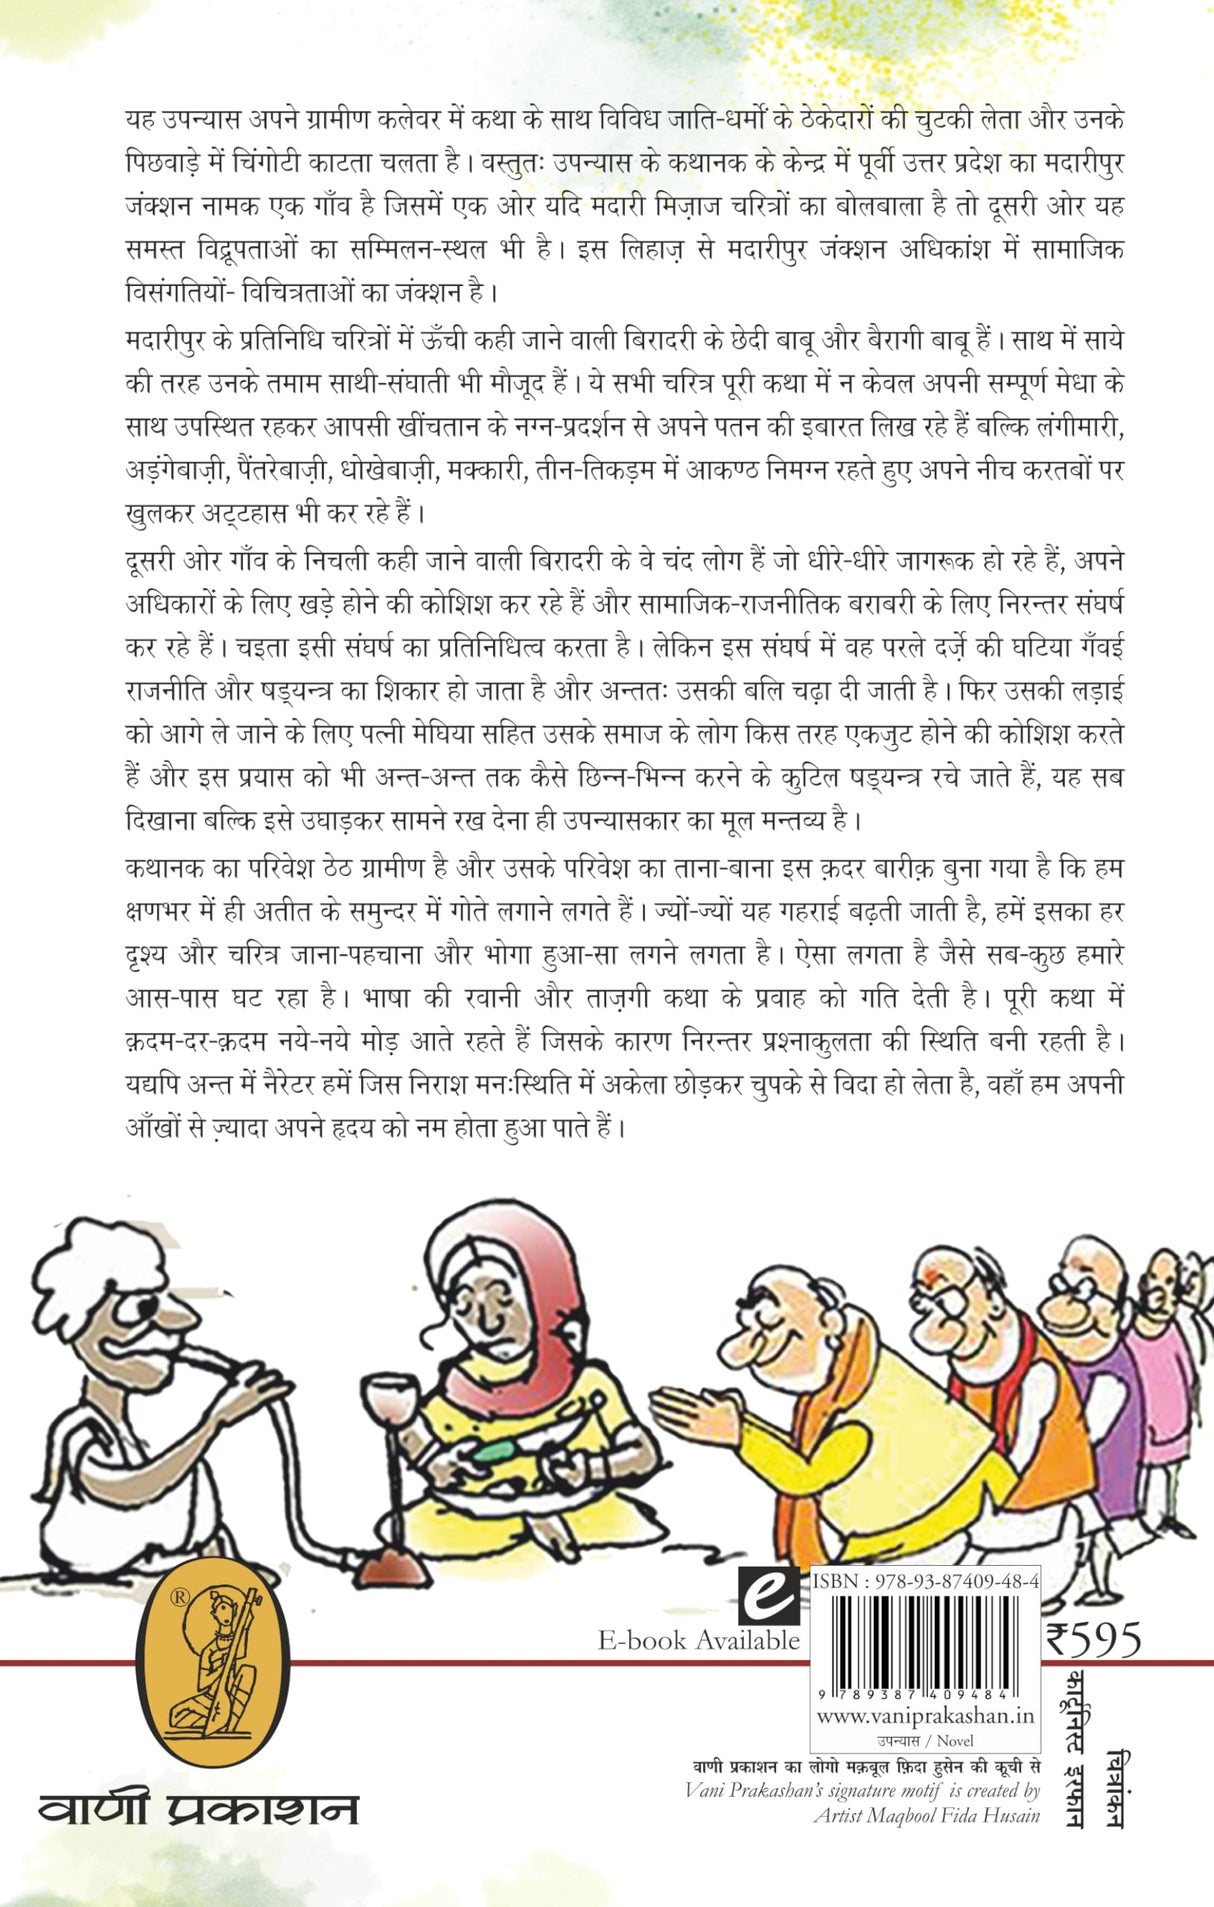 यह उपन्यास अपने ग्रामीण कलेवर में कथा के साथ विविध जाति-धर्मों के ठेकेदारों की चुटकी लेता और उनके
पिछवाड़े में चिंगोटी काटता चलता है। वस्तुतः उपन्यास के कथानक के केन्द्र में पूर्वी उत्तर प्रदेश का मदारीपुर
जंक्शन नामक एक गाँव है जिसमें एक ओर यदि मदारी मिज़ाज चरित्रों का बोलबाला है तो दूसरी ओर यह
समस्त विद्रूपताओं का सम्मिलन-स्थल भी है। इस लिहाज़ से मदारीपुर जंक्शन अधिकांश में सामाजिक
विसंगतियों- विचित्रताओं का जंक्शन है।
मदारीपुर के प्रतिनिधि चरित्रों में ऊँची कही जाने वाली बिरादरी के छेदी बाबू और बैरागी बाबू हैं। साथ में साये
की तरह उनके तमाम साथी-संघाती भी मौजूद हैं। ये सभी चरित्र पूरी कथा में न केवल अपनी सम्पूर्ण मेधा के
साथ उपस्थित रहकर आपसी खींचतान के नग्न-प्रदर्शन से अपने पतन की इबारत लिख रहे हैं बल्कि लंगीमारी,
अड़ंगेबाज़ी, पैंतरेबाज़ी, धोखेबाज़ी, मक्कारी, तीन-तिकड़म में आकण्ठ निमग्न रहते हुए अपने नीच करतबों पर
खुलकर अट्टहास भी कर रहे हैं।
दूसरी ओर गाँव के निचली कही जाने वाली बिरादरी के वे चंद लोग हैं जो धीरे-धीरे जागरूक हो रहे हैं, अपने
अधिकारों के लिए खड़े होने की कोशिश कर रहे हैं और सामाजिक-राजनीतिक बराबरी के लिए निरन्तर संघर्ष
कर रहे हैं। चइता इसी संघर्ष का प्रतिनिधित्व करता है। लेकिन इस संघर्ष में वह परले दर्ज़े की घटिया गँवई
राजनीति और षड्यन्त्र का शिकार हो जाता है और अन्ततः उसकी बलि चढ़ा दी जाती है। फिर उसकी लड़ाई
को आगे ले जाने के लिए पत्नी मेघिया सहित उसके समाज के लोग किस तरह एकजुट होने की कोशिश करते
हैं और इस प्रयास को भी अन्त-अन्त तक कैसे छिन्न-भिन्न करने के कुटिल षड्यन्त्र रचे जाते हैं, यह सब
दिखाना बल्कि इसे उघाड़कर सामने रख देना ही उपन्यासकार का मूल मन्तव्य है।
कथानक का परिवेश ठेठ ग्रामीण है और उसके परिवेश का ताना-बाना इस क़दर बारीक़ बुना गया है कि हम
क्षणभर में ही अतीत के समुन्दर में गोते लगाने लगते हैं। ज्यों-ज्यों यह गहराई बढ़ती जाती है, हमें इसका हर
दृश्य और चरित्र जाना-पहचाना और भोगा हुआ-सा लगने लगता है। ऐसा लगता है जैसे सब-कुछ हमारे
आस-पास घट रहा है। भाषा की रवानी और ताज़गी कथा के प्रवाह को गति देती है। पूरी कथा में
क़दम-दर-क़दम नये-नये मोड़ आते रहते हैं जिसके कारण निरन्तर प्रश्नाकुलता की स्थिति बनी रहती है।
यद्यपि अन्त में नैरेटर हमें जिस निराश मनःस्थिति में अकेला छोड़कर चुपके से विदा हो लेता है, वहाँ हम अपनी
आँखों से ज़्यादा अपने हृदय को नम होता हुआ पाते हैं।
®
वाणी प्रकाशन
e
E-book Available
ISBN : 978-93-87409-48-4
9 789387 409484
www.vaniprakashan.in
उपन्यास / Novel
₹595
वाणी प्रकाशन का लोगो मक़बूल फ़िदा हुसेन की कूची से
Vani Prakashan's signature motif is created by
Artist Maqbool Fida Husain
चित्रांकन
कार्टूनिस्ट इरफान